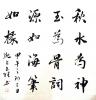 秋水為神
玉為骨詞
源如海筆
如椽